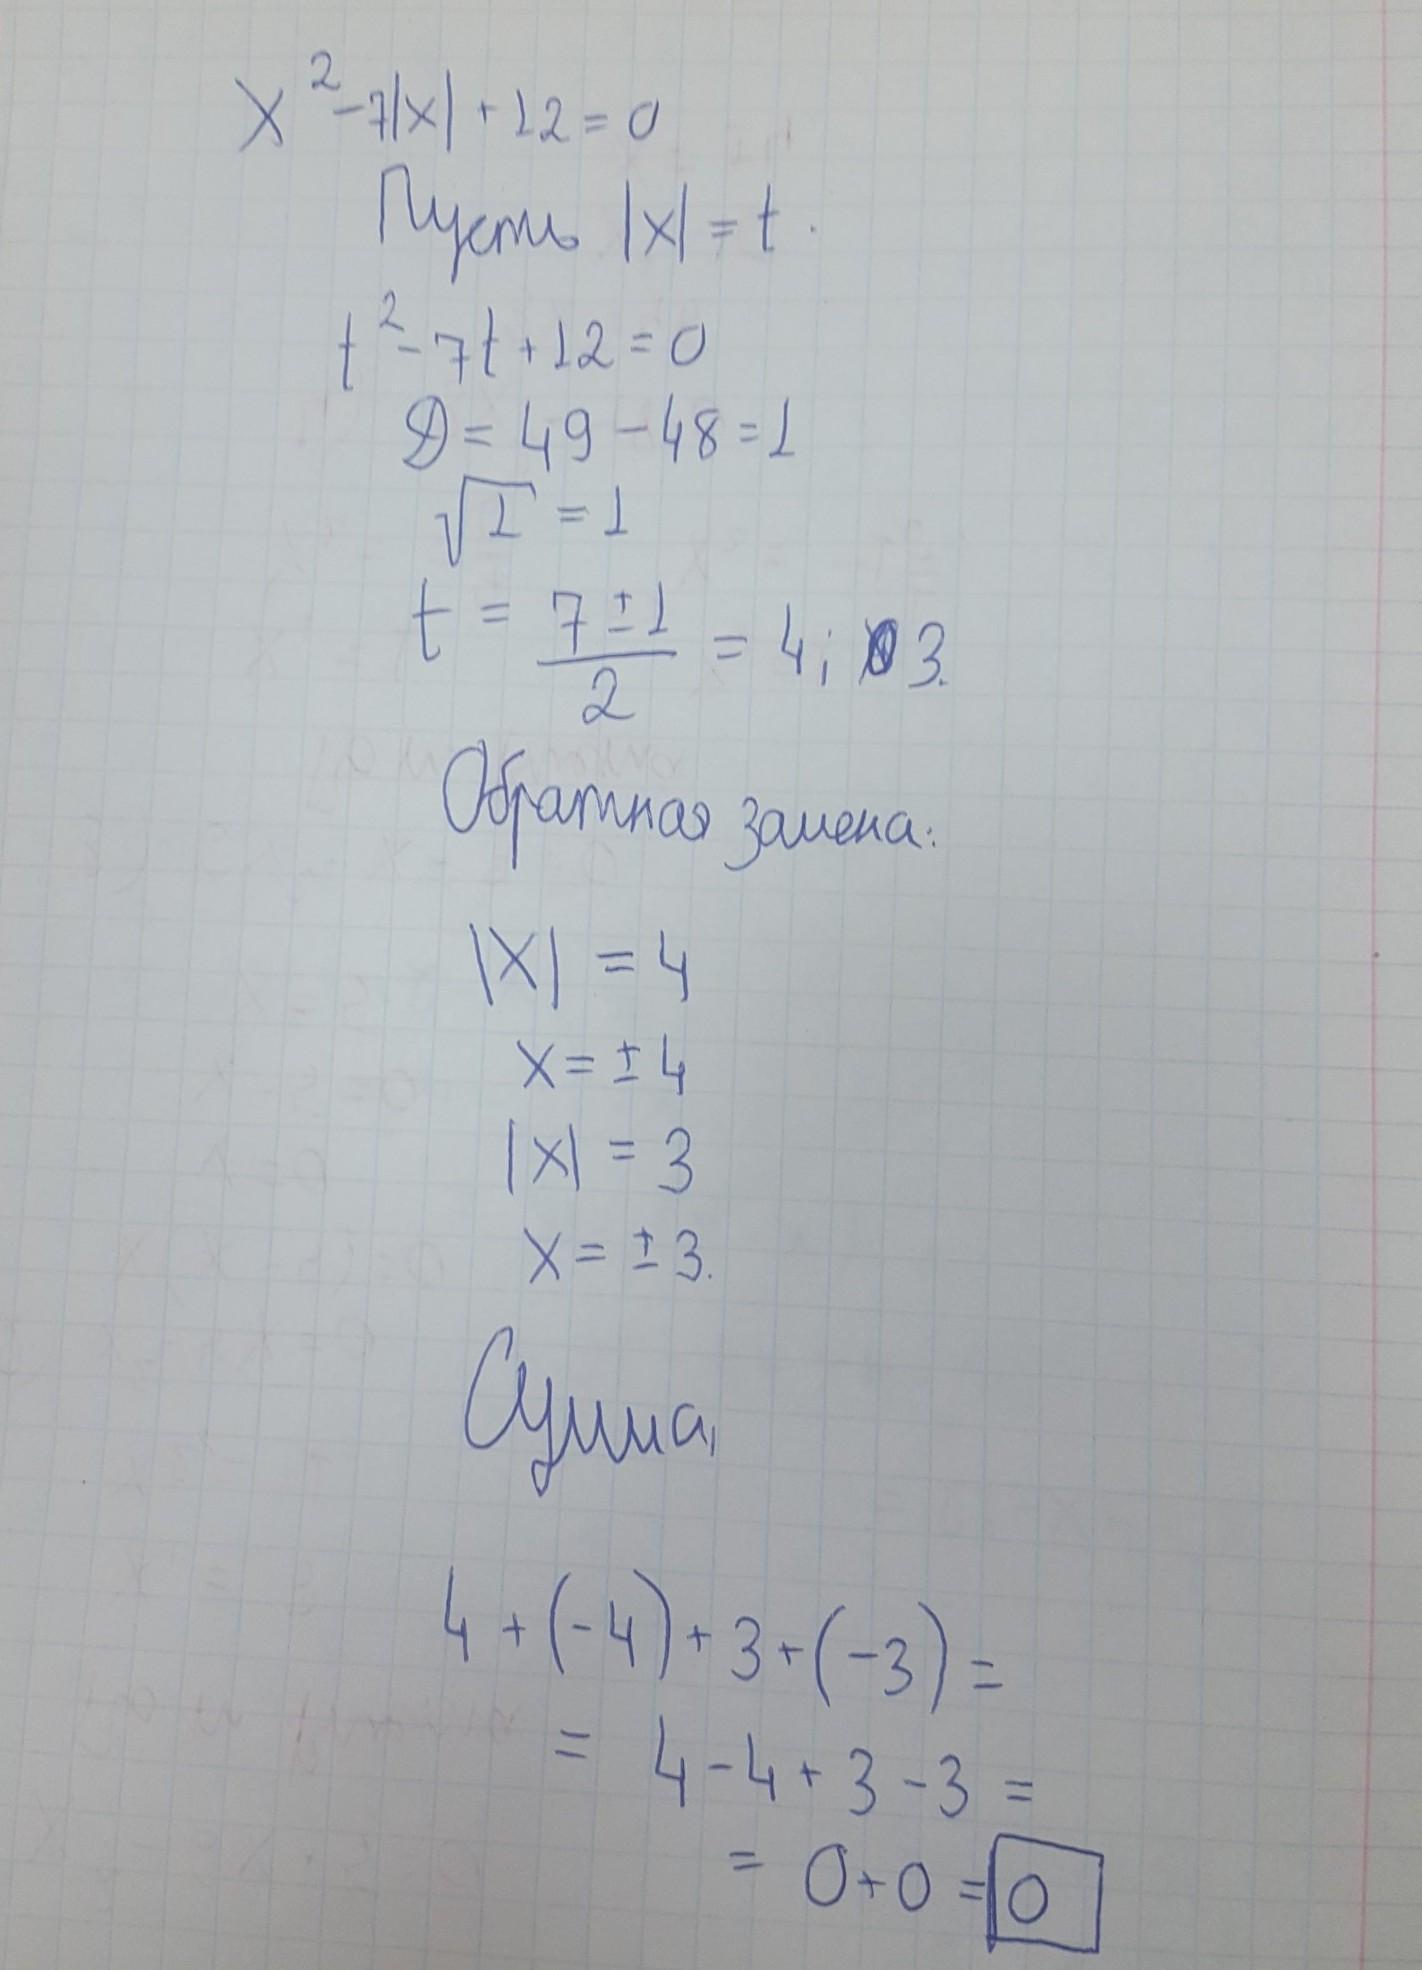 x²-7|x|+12=0
Пусть |x|=t.
t²-7t+12=0
D=49-48=1
√1=1
t=(7±1)/2=4; 3.
Обратная замена:
|x|=4
x=±4
|x|=3
x=±3.
Сумма,
4+(-4)+3+(-3)=
=4-4+3-3=
=0+0=0